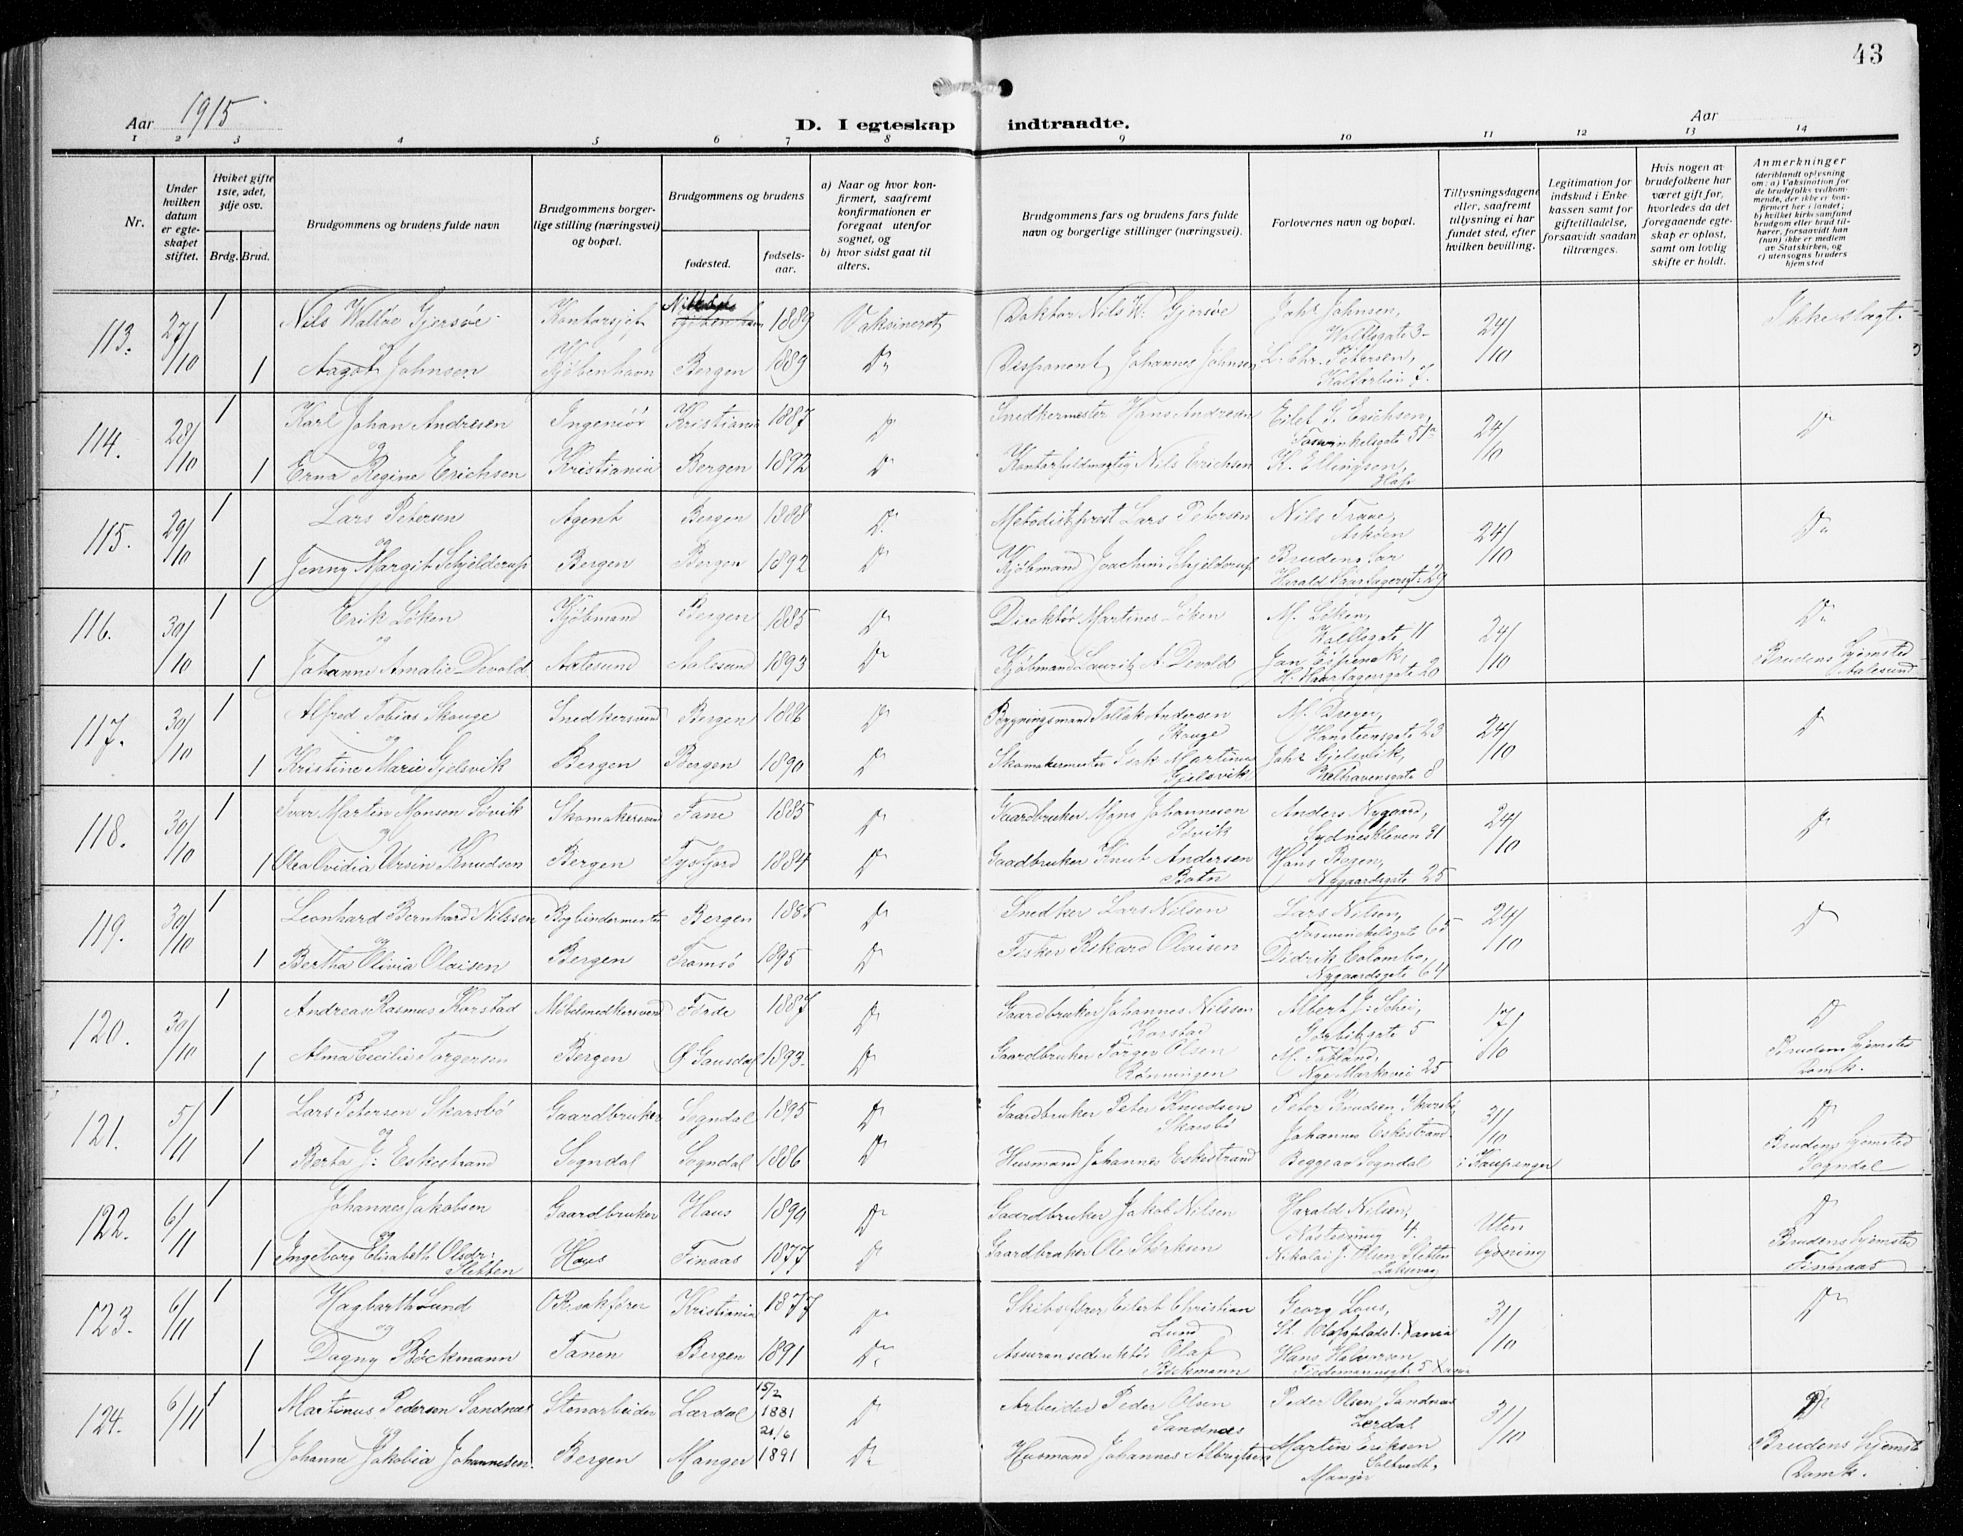 43
Aar 1915
D. I egteskap indtraadte.
Aar
1 2 3 4 5 6 7 8 9 10 11 12 13 14
Nr.
Under hvilken datum er egteskapet stiftet.
Hviket gifte 1ste, 2det, 3dje osv.
Brdg. Brud.
Brudgommens og brudens fulde navn
Brudgommens borgerlige stilling (næringsvei) og bopæl.
Brudgommens og brudens
fødested.
fødselsaar.
a) Naar og hvor konfirmert, saafremt konfirmationen er foregaat utenfor sognet, og
b) hvor sidst gaat til alters.
Brudgommens fars og brudens fars fulde navn og borgerlige stillinger (næringsvei).
Forlovernes navn og bopæl.
Tillysningsdagene eller, saafremt tillysning ei har fundet sted, efter hvilken bevilling.
Legitimation for indskud i Enkekassen samt for giftetilladelse, forsaavidt saadan tiltrænges.
Hvis nogen av brudefolkene har været gift før, hvorledes da det foregaaende egteskap er opløst, samt om lovlig skifte er holdt.
Anmerkninger
(deriblandt oplysning om: a) Vaksination for de brudefolks vedkommende, der ikke er konfirmert her i landet; b) hvilket kirkesamfund brudgom eller brud tilhører, forsaavidt han (hun) ikke er medlem av Statskirken, og c) utensogns bruders hjemsted
113. 27/10 1 Nils Waltre Gjersøe Kontorsjef 1889 Vaksineret Doktor Nils W. Gjersøe Johs Johnsen, 24/10 Ikke slegt.
og Wallesgate 3
1 Aagot Johnsen Kjøbenhavn Bergen 1889 Do Disponent Johannes Johnsen L. Chr. Petersen,
Kalfarbien 7.
114. 28/10 1 Karl Johan Andresen Ingeniør Kristiania 1887 Do Snedkermester Hans Andresen Eilef G. Erichsen, 24/10 Do
og 51a
1 Erna Regine Erichsen Kristiania Bergen 1892 Do Kontorfuldmægtig Nils Erichsen K. Ellingsen,
115. 29/10 1 Lars Petersen Agent Bergen 1888 Do Metodistprest Lars Petersen Nils Trane, 24/10 Do
og Askøen
1 Jenny Margit Schjelderup Bergen Bergen 1892 Do Kjøbmand Joachim Schjelderup Brudens far
Harald Haarfagersgt. 29
116. 30/10 1 Erik Løken Kjøbmand Bergen 1885 Do Direktør Martines Løken M. Løken, 24/10 Do
og 11
1 Johanne Amalie Devold Aalesund Aalesund 1893 Do Kjøbmand Lauritz A. Devold Jan Espenak, Brudens hjemsted
H. Haarfagersgate 20 Aalesund
117. 30/10 1 Alfred Tobias Skauge Snedkersvend Bergen 1886 Do Bygningsmand Tollak Andersen M. Dreyer, 24/10 Do
og Skauge Hansteensgate 23
1 Kristine Marie Gjelsvik Bergen Bergen 1890 Do Skomakermester Martinus Johs Gjelsvik,
Gjelsvik Welhavensgate 8
118. 30/10 1 Ivar Martin Monsen Søvik Skomakersvend Fane 1885 Do Gaardbruker Mons Johannesen Anders Nygaard, 24/10 Do
og Søvik Sydneskleven 31
1 Olea Ovidia Ursin Knudsen Bergen Tysfjord 1884 Do Gaardbruker Knut Andersen Hans Bogen,
Botn Nygaardsgate 25
119. 30/10 1 Leonhard Bernhard Nilssen Bogbindermester Bergen 1885 Do Snedker Lars Nilsen Lars Nilsen, 24/10 Do
og 65
1 Bertha Olivia Olaisen Bergen Tromsø 1895 Do Fisker Rikard Olaisen Didrik Colombo,
Nygaardsgate 64
120. 30/10 1 Andreas Rasmus Karstad Møbelsnedkersvend Førde 1887 Do Gaardbruker Johannes Nilssen Albert J. Schei, 17/10 Do
og Karstad 5
1 Alma Cecilie Torgersen Bergen Ø. Gausdal 1893 Do Gaardbruker Torger Olsen M. Totland, Brudens hjemsted
Rønningen Nye Markevei 25 Domk.
121. 5/11 1 Lars Petersen Skarsbø Gaardbruker Sogndal 1895 Do Gaardbruker Peter Knudsen Peter Knudsen Skarsbø, 31/10 Do
og Skarsbø Johannes Eskestrand
1 Berta J. Eskestrand Sogndal Sogndal 1886 Do Husmand Johannes Eskestrand Begge av Sogndal i Kaupanger Brudens hjemsted
Sogndal
122. 6/11 1 Johannes Jakobsen Gaardbruker Haus 1890 Do Gaardbruker Jakob Nilsen Harald Nilsen, Uten lysning Do
og 4.
1 Ingeborg Elisabeth Olsdr. Haus Finaas 1877 Do Gaardbruker Ole Størksen Nikolai J. Olsen Sletten Brudens hjemsted
Sletten Laksevaag Finnaas
123. 6/11 1 Hagbarth Lund O.R.sakfører Kristiania 1877 Do Skibsfører Eilert Christian Georg Lous, 31/10 Do
og Lund St. Olafsplads 1. Xania
1 Dagny Bøckmann Tanen Bergen 1891 Do Assuransedirektør Olaf Hans Halvorsen
Bøckmann 5 Xania
124. 6/11 1 Martinus Pedersen Sandnes Stenarbeider Lærdal 15/2 1881 Do Arbeider Peder Olsen Peder Olsen Sandnes 31/10 Do
og Sandnes Lærdal
1 Johanne Jakobia Johannesen. Bergen Manger 21/6 1891 Do Husmand Johannes Albregtsen Martin Eriksen Brudens hjemsted
Manger Domk.